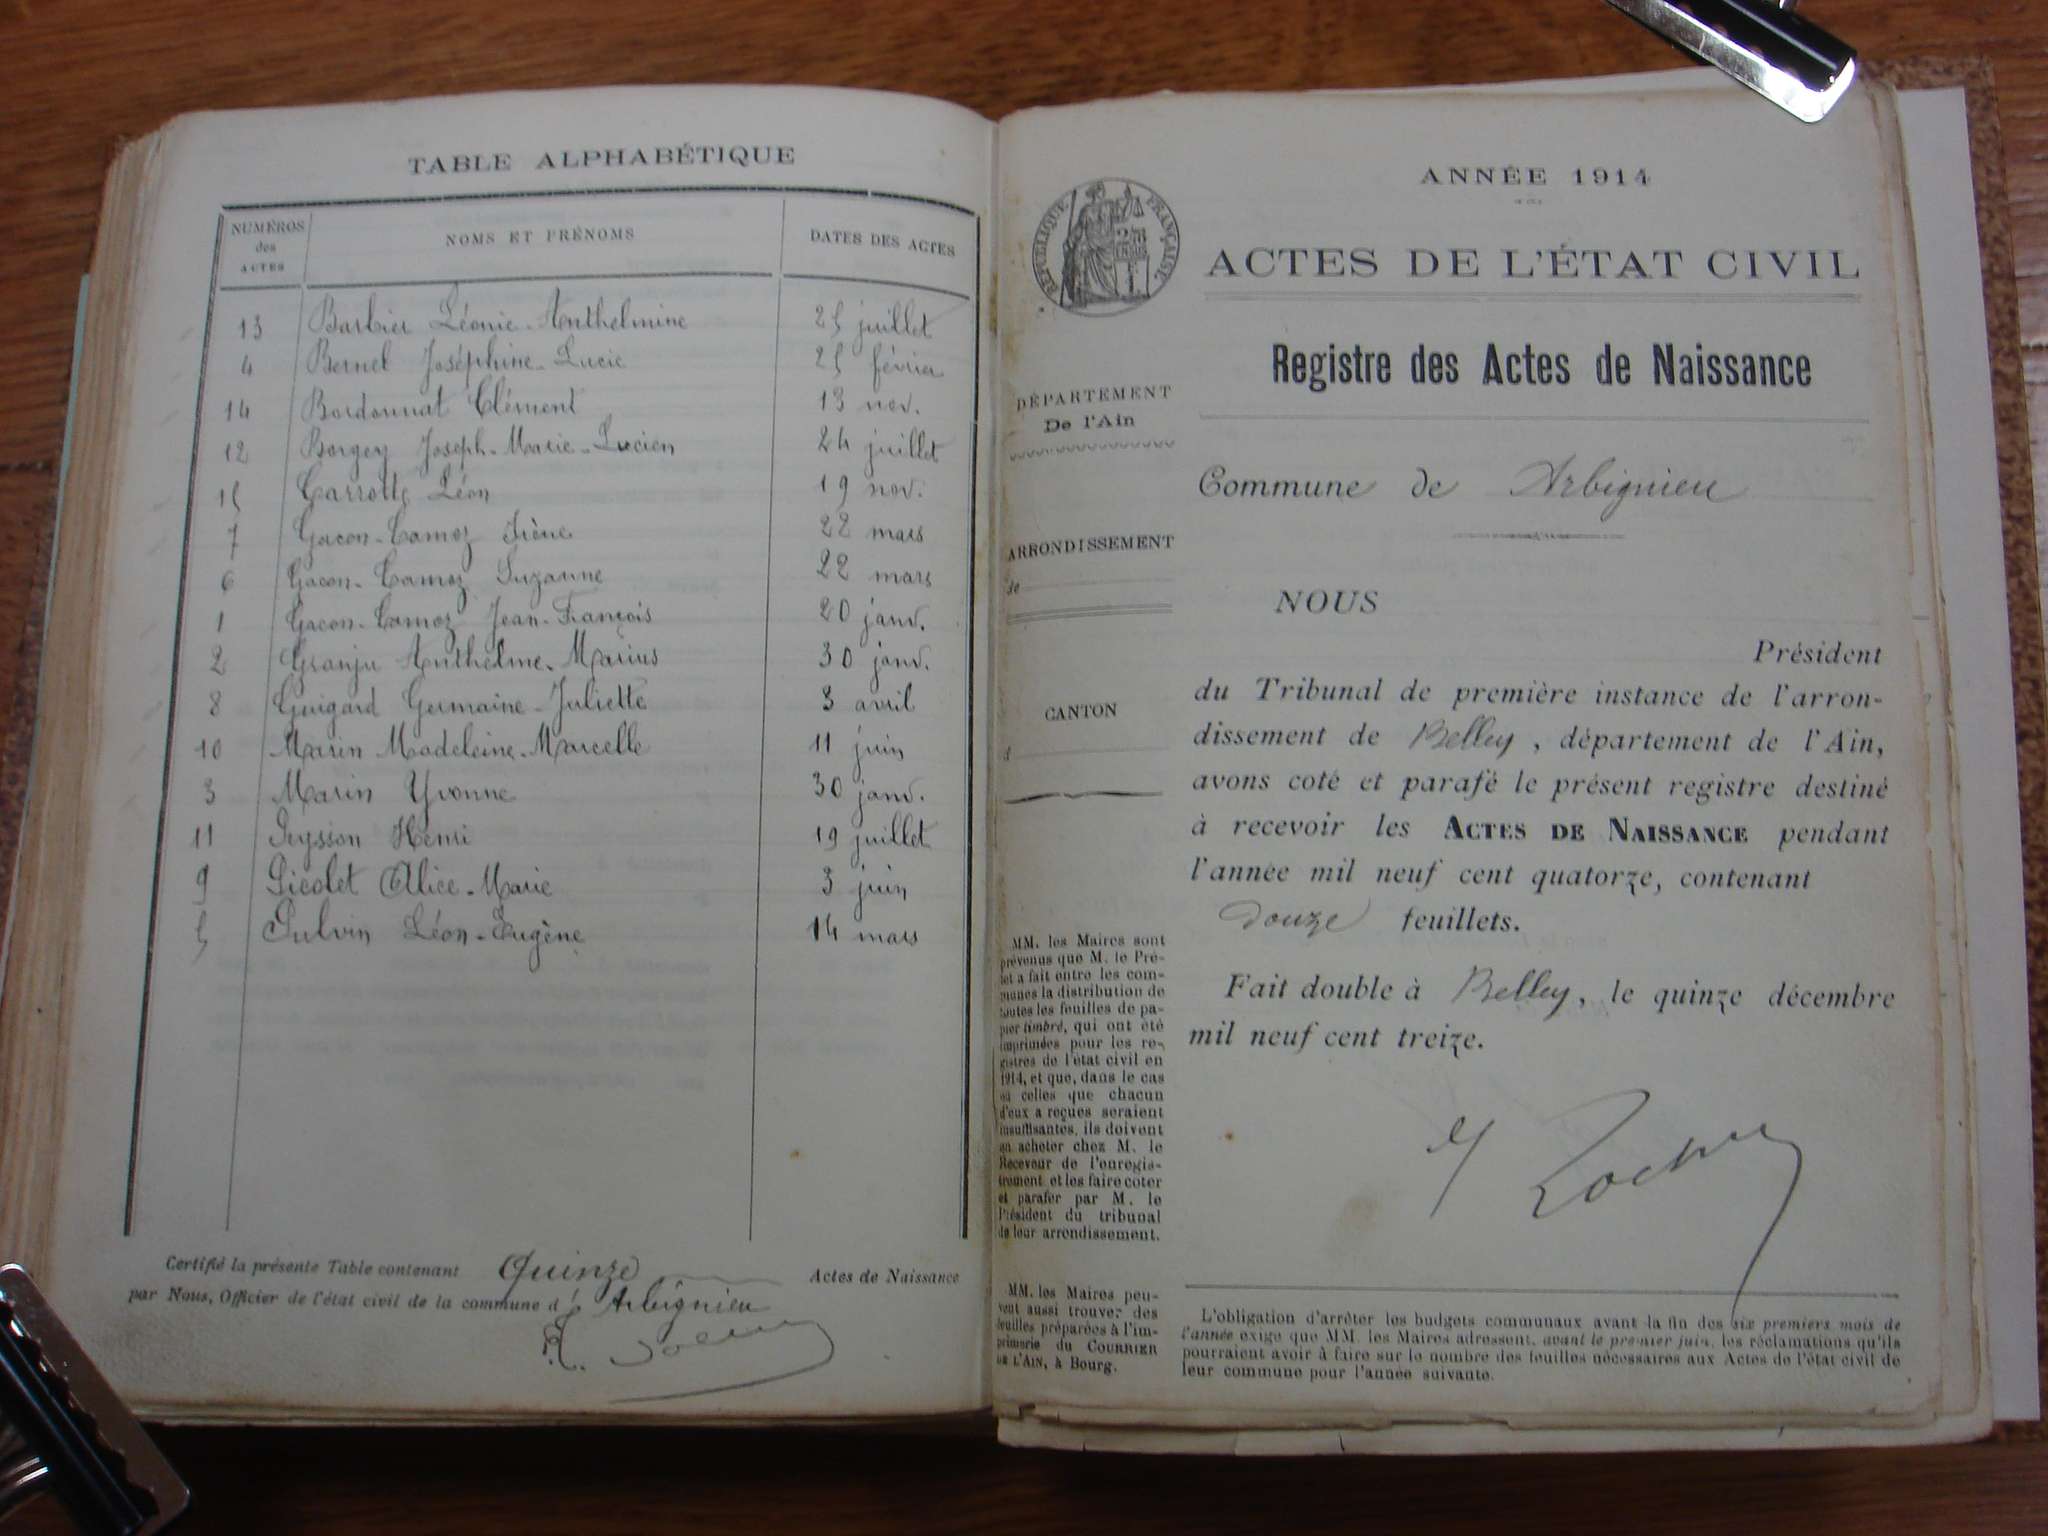 TABLE ALPHABÉTIQUE
NUMÉROS des ACTES
NOMS ET PRÉNOMS
DATES DES ACTES
13 Barbier Léonie-Anthelmine 25 juillet
4 Bernel Joséphine-Lucie 25 février
14 Bordonnat Clément 13 nov.
12 Borgey Joseph-Marie-Lucien 24 juillet
15 Carrotte Léon 19 nov.
7 Gacon-Camoz Irène 22 mars
6 Gacon-Camoz Suzanne 22 mars
1 Gacon-Camoz Jean-François 20 janv.
2 Granju Anthelme-Marius 30 janv.
8 Guigard Germaine-Juliette 3 avril
10 Marin Madeleine-Marcelle 11 juin
3 Marin Yvonne 30 janv.
11 Peysson Henri 19 juillet
9 Picolet Alice-Marie 3 juin
5 Pulvin Léon-Eugène 14 mars
Certifié la présente Table contenant Quinze Actes de Naissance
par Nous, Officier de l'état civil de la commune d' Arbignieu
ANNÉE 1914
RÉPUBLIQUE FRANÇAISE
ACTES DE L'ÉTAT CIVIL
Registre des Actes de Naissance
DÉPARTEMENT
De l'Ain
Commune de Arbignieu
ARRONDISSEMENT
de
CANTON
d
NOUS
Président
du Tribunal de première instance de l'arron-
dissement de Belley, département de l'Ain,
avons coté et parafé le présent registre destiné
à recevoir les ACTES DE NAISSANCE pendant
l'année mil neuf cent quatorze, contenant
douze feuillets.
Fait double à Belley, le quinze décembre
mil neuf cent treize.
MM. les Maires sont
prévenus que M. le Pré-
fet a fait entre les com-
munes la distribution de
toutes les feuilles de pa-
pier timbré, qui ont été
imprimées pour les re-
gistres de l'état civil en
1914, et que, dans le cas
où celles que chacun
d'eux a reçues seraient
insuffisantes, ils doivent
en acheter chez M. le
Receveur de l'enregis-
trement et les faire coter
et parafer par M. le
Président du tribunal
de leur arrondissement.
MM. les Maires peu-
vent aussi trouver des
feuilles préparées à l'im-
primerie du COURRIER
DE L'AIN, à Bourg.
L'obligation d'arrêter les budgets communaux avant la fin des six premiers mois de
l'année exige que MM. les Maires adressent, avant le premier juin, les réclamations qu'ils
pourraient avoir à faire sur le nombre des feuilles nécessaires aux Actes de l'état civil de
leur commune pour l'année suivante.